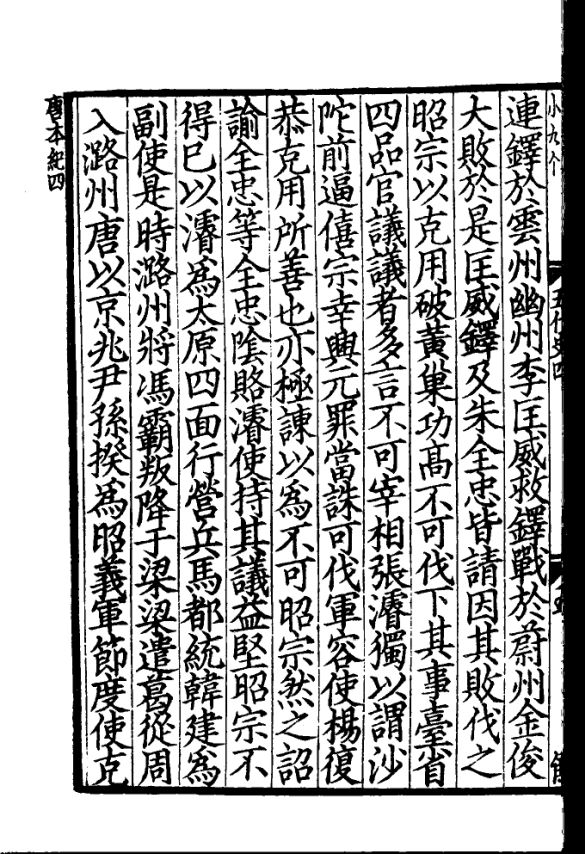 連鐸於雲州幽州李匡威救鐸戰於蔚州金俊
大敗於是匡威鐸及朱全忠皆請因其敗伐之
昭宗以克用破黃巢功髙不可伐下其事臺省
四品官議議者多言不可宰相張濬獨以謂沙
陀前逼僖宗幸興元罪當誅可伐軍容使楊復
恭克用所善也亦極諫以爲不可昭宗然之詔
諭全忠等全忠隂賂濬使持其議益堅昭宗不
得已以濬爲太原四面行營兵馬都統韓建爲
副使是時潞州將馮霸叛降于梁梁遣葛從周
入潞州唐以京兆尹孫揆爲昭義軍節度使克
唐本紀四